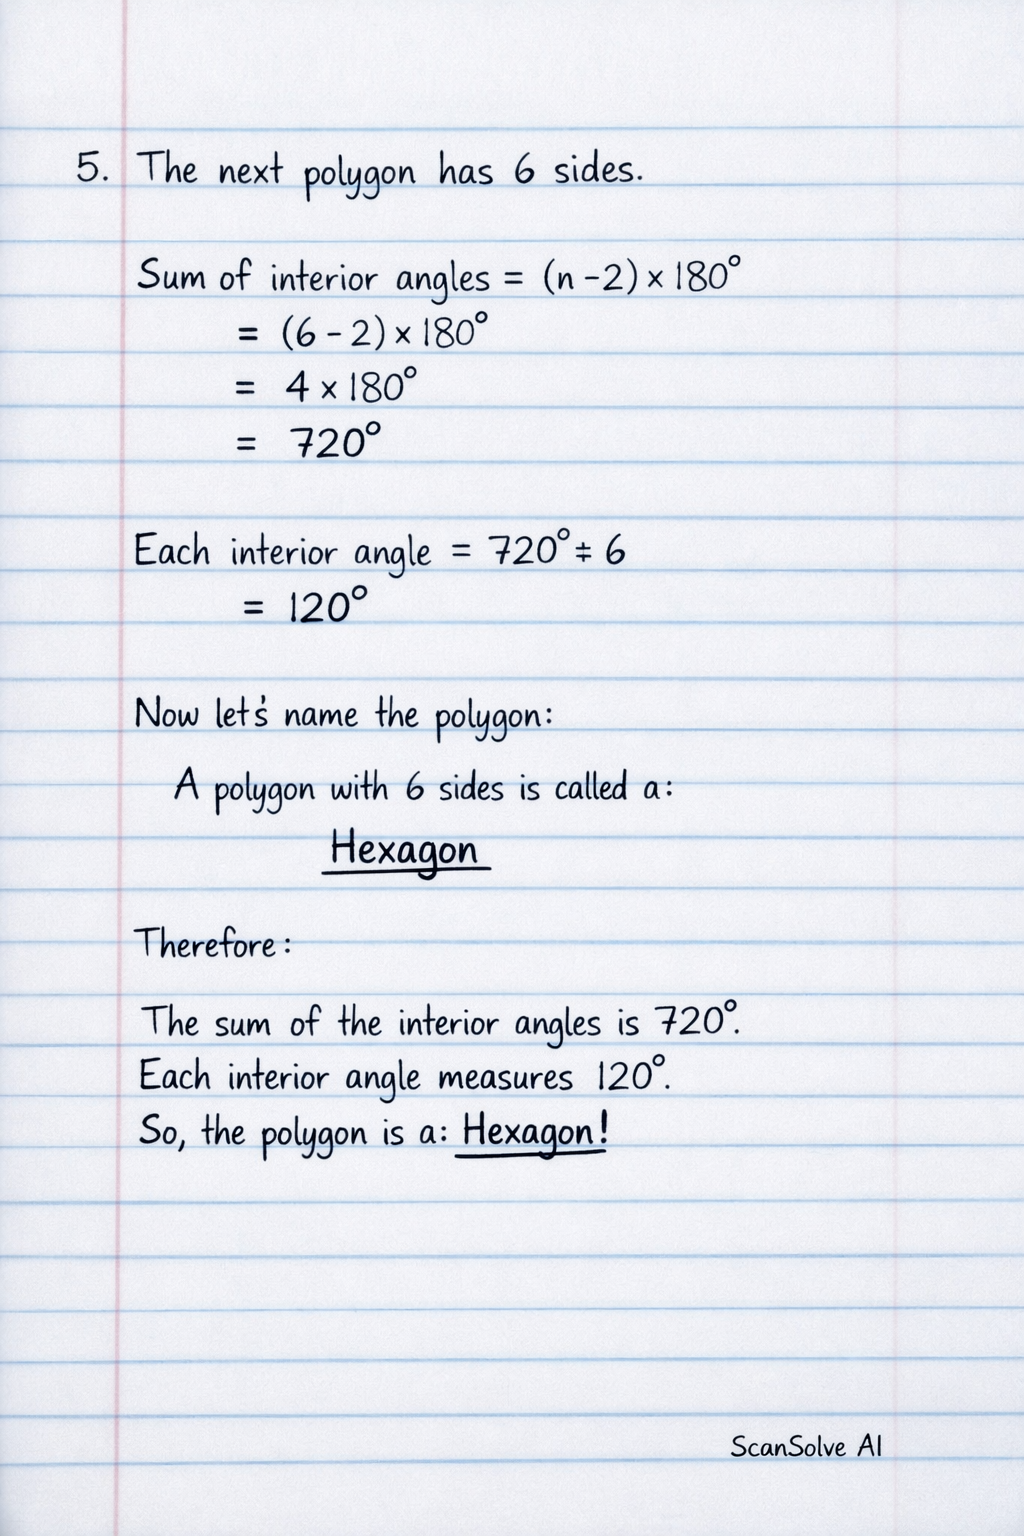 5. The next polygon has 6 sides.
Sum of interior angles = (n - 2) × 180°
= (6 - 2) × 180°
= 4 × 180°
= 720°
Each interior angle = 720° ÷ 6
= 120°
Now let's name the polygon:
A polygon with 6 sides is called a:
Hexagon
Therefore:
The sum of the interior angles is 720°.
Each interior angle measures 120°.
So, the polygon is a: Hexagon!
ScanSolve AI